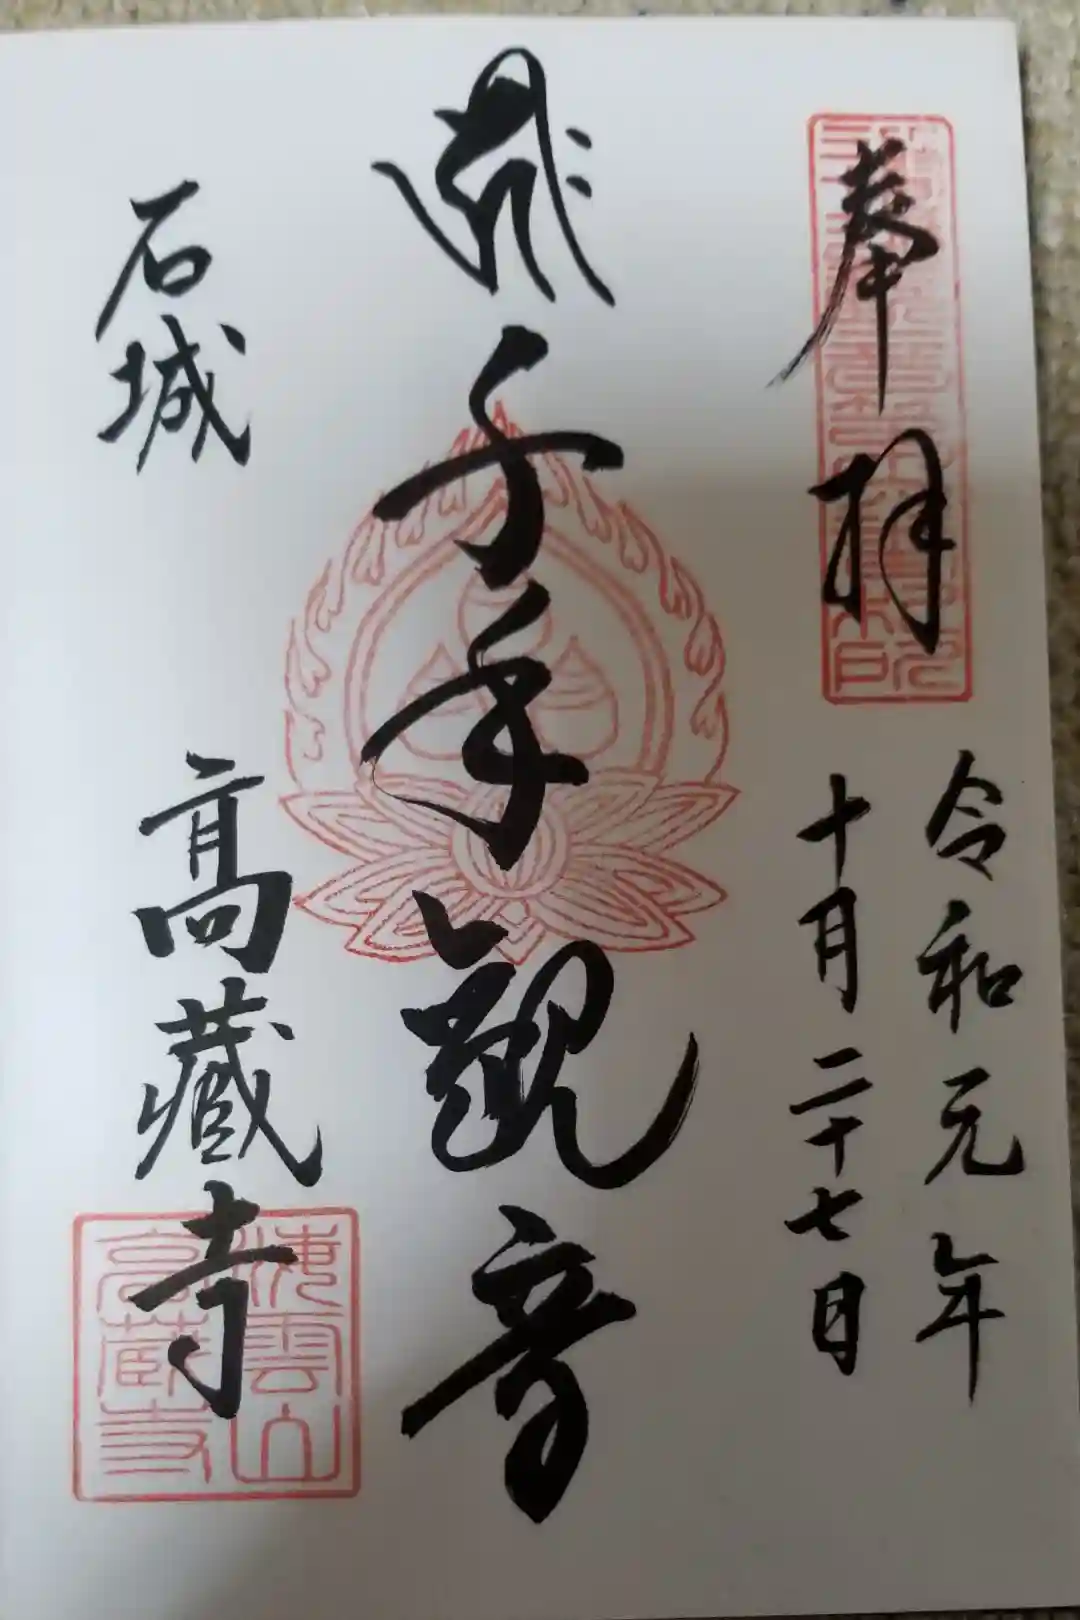 奉拝
令和元年
十月二十七日
千手觀音
石城
高藏寺
海雲山
高蔵寺